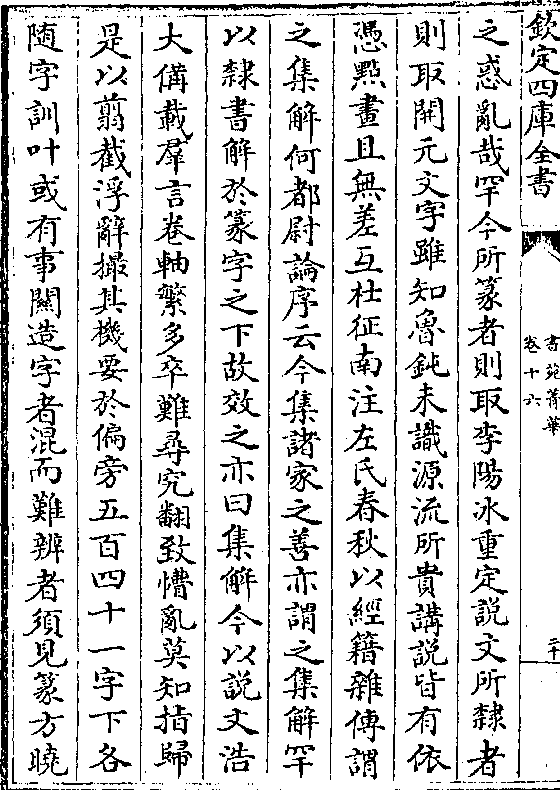 欽定四庫全書
書苑菁華
卷十六
二十
之惑亂哉罕今所篆者則取李陽冰重定説文所隸者
則取開元文字雖知魯鈍未識源流所貴講説皆有依
憑點畫且無差互杜征南注左氏春秋以經籍雜傳謂
之集解何都尉論序云今集諸家之善亦謂之集解罕
以隸書解於篆字之下故效之亦曰集解今以説文浩
大備載羣言卷軸繁多卒難尋究翻致懵亂莫知指歸
是以翦截浮辭撮其機要於偏旁五百四十一字下各
随字訓叶或有事關造字者混而難辨者須見篆方曉